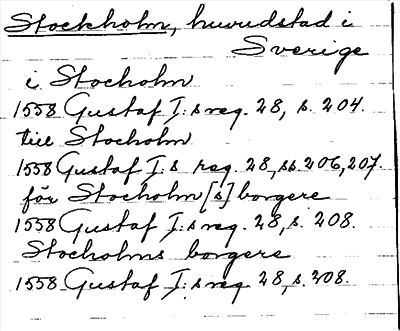 Stockholm, huvudstad i
Sverige
i Stocholm
1558 Gustaf I:s reg. 28, s. 204.
till Stocholm
1558 Gustaf I:s reg. 28, ss. 206, 207
för Stocholm[s] borgere
1558 Gustaf I:s reg. 28, s. 208.
Stocholms borgere
1558 Gustaf I:s reg. 28, s. 208.